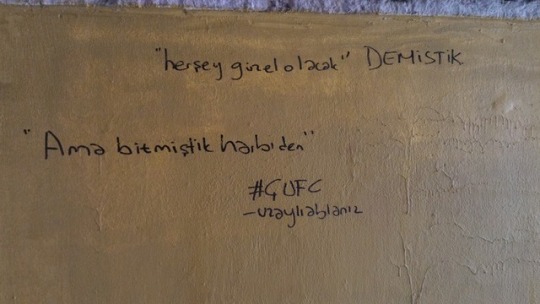 "herşey güzel olacak" DEMİSTİK
"Ama bitmiştik harbiden"
#GUFC
-uzaylıablanız